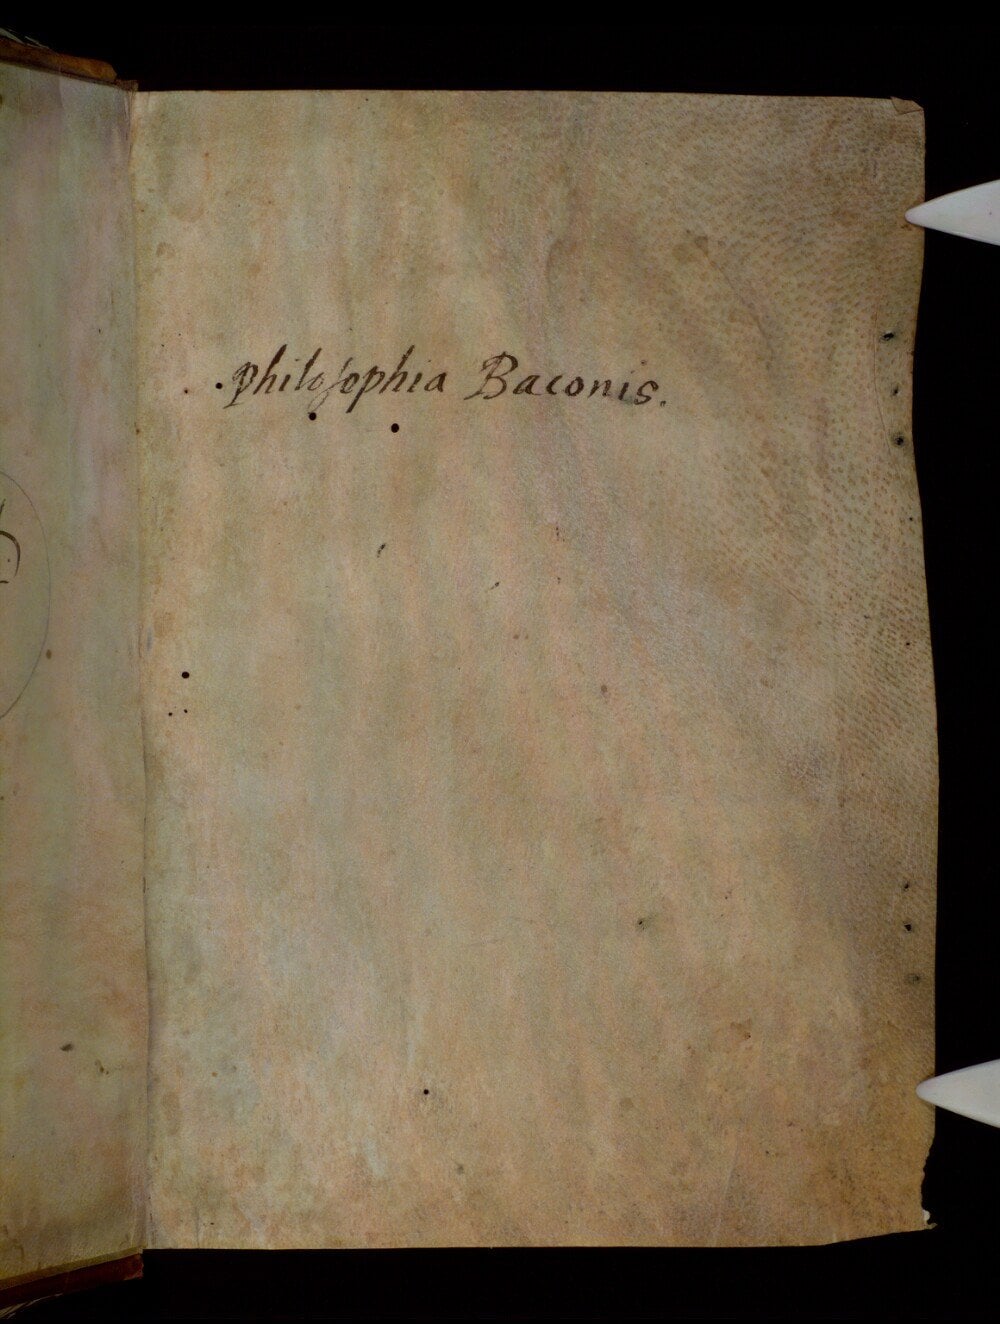 . philosophia Baconis.